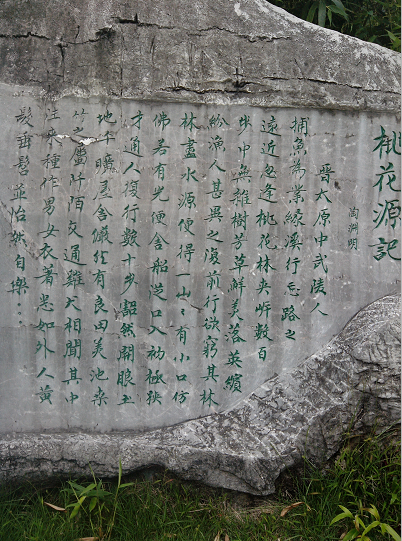 桃花源記
陶淵明
晉太原中武陵人
捕魚為業緣溪行忘路之
遠近忽逢桃花林夾岸數百
步中無雜樹芳草鮮美落英繽
紛漁人甚異之復前行欲窮其林
林盡水源便得一山〻有小口仿
佛若有光便舍船從口入初極狹
才通人復行數十步豁然開朗土
地平曠屋舍儼然有良田美池桑
竹之屬阡陌交通雞犬相聞其中
往來種作男女衣著悉如外人黃
髮垂髫並怡然自樂。。